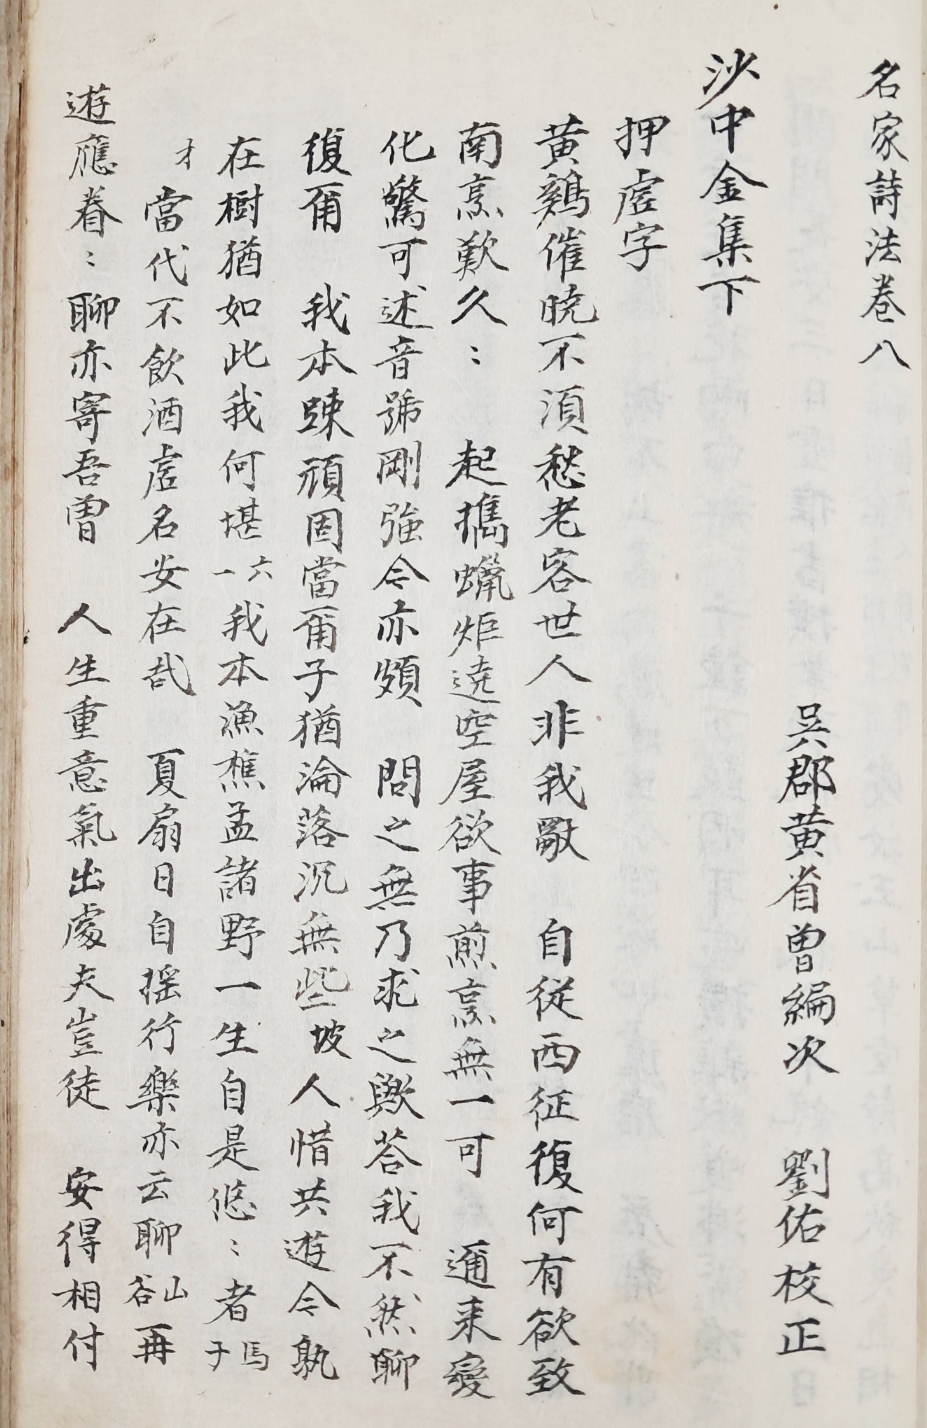 名家詩法卷八
吳郡黃省曾編次　劉佑校正
沙中金集下
押虛字
黃鷄催曉不須愁老容世人非我獸　自從西征復何有欲致
南烹歎久：　起擕蠟炬遶空屋欲事煎烹無一可　邇来變
化驚可述音號剛強今亦頗　問之無乃求之歟荅我不然聊
復爾　我本踈頑固當爾子猶淪落沉無些坡人惜共遊今孰
在樹猶如此我何堪六一我本漁樵孟諸野一生自是悠：者馬子
才當代不飲酒虛名安在哉　夏扇日自搖行樂亦云聊山谷再
遊應眷：聊亦寄吾曾　人生重意氣出處夫豈徒　安得相付